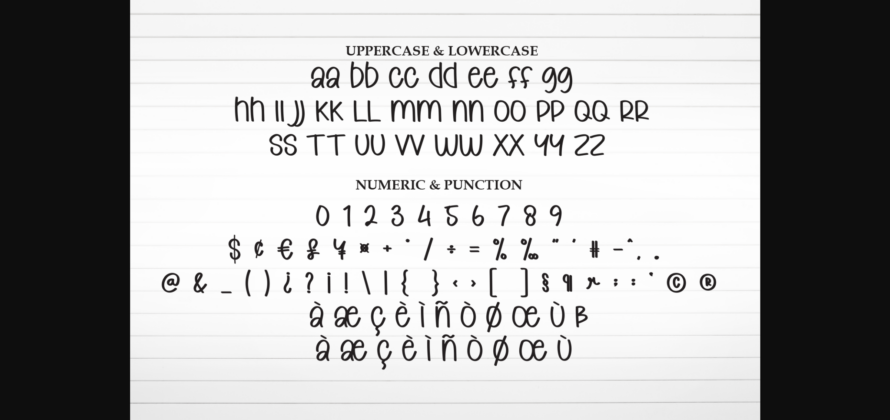 UPPERCASE & LOWERCASE
aa bb cc dd ee ff gg
hh II JJ KK LL mm nn OO PP QQ RR
SS TT UU VV WW XX YY ZZ
NUMERIC & PUNCTION
0 1 2 3 4 5 6 7 8 9
$ ¢ € £ ¥ ¤ + ° / ÷ = % ‰ " ' # - ^ , .
@ & _ ( ) ¿ ? ¡ ! \ | { } ‹ › [ ] § ¶ ; : ' © ®
à æ ç è ì ñ ò ø œ ù ß
à æ ç è ì ñ ò ø œ ù